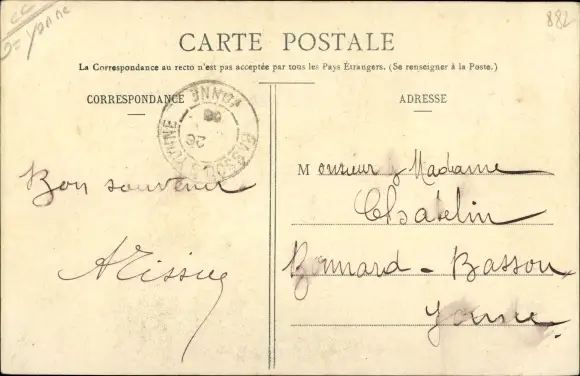 Yonne
882
CARTE POSTALE
La Correspondance au recto n'est pas acceptée par tous les Pays Étrangers. (Se renseigner à la Poste.)
CORRESPONDANCE
ADRESSE
BASSOU YONNE
26
08
Bon souvenir
Monsieur & Madame
Chatelin
Bonnard - Bassou
Yonne.